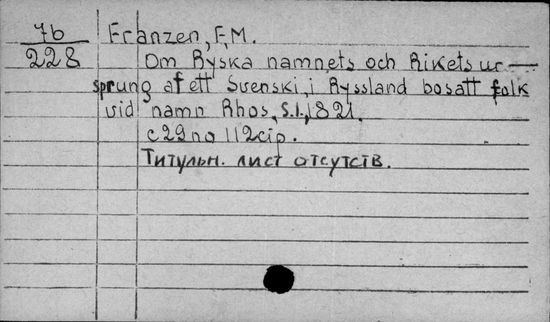 7b
228
Franzen, F.M.
Om Ryska namnets och Rikets ur—
sprung af ett Svenski, i Ryssland bosatt folk
vid namn Rhos, S.l., 1821.
c 29 no 112 cip.
Титульн. лист отсутств.